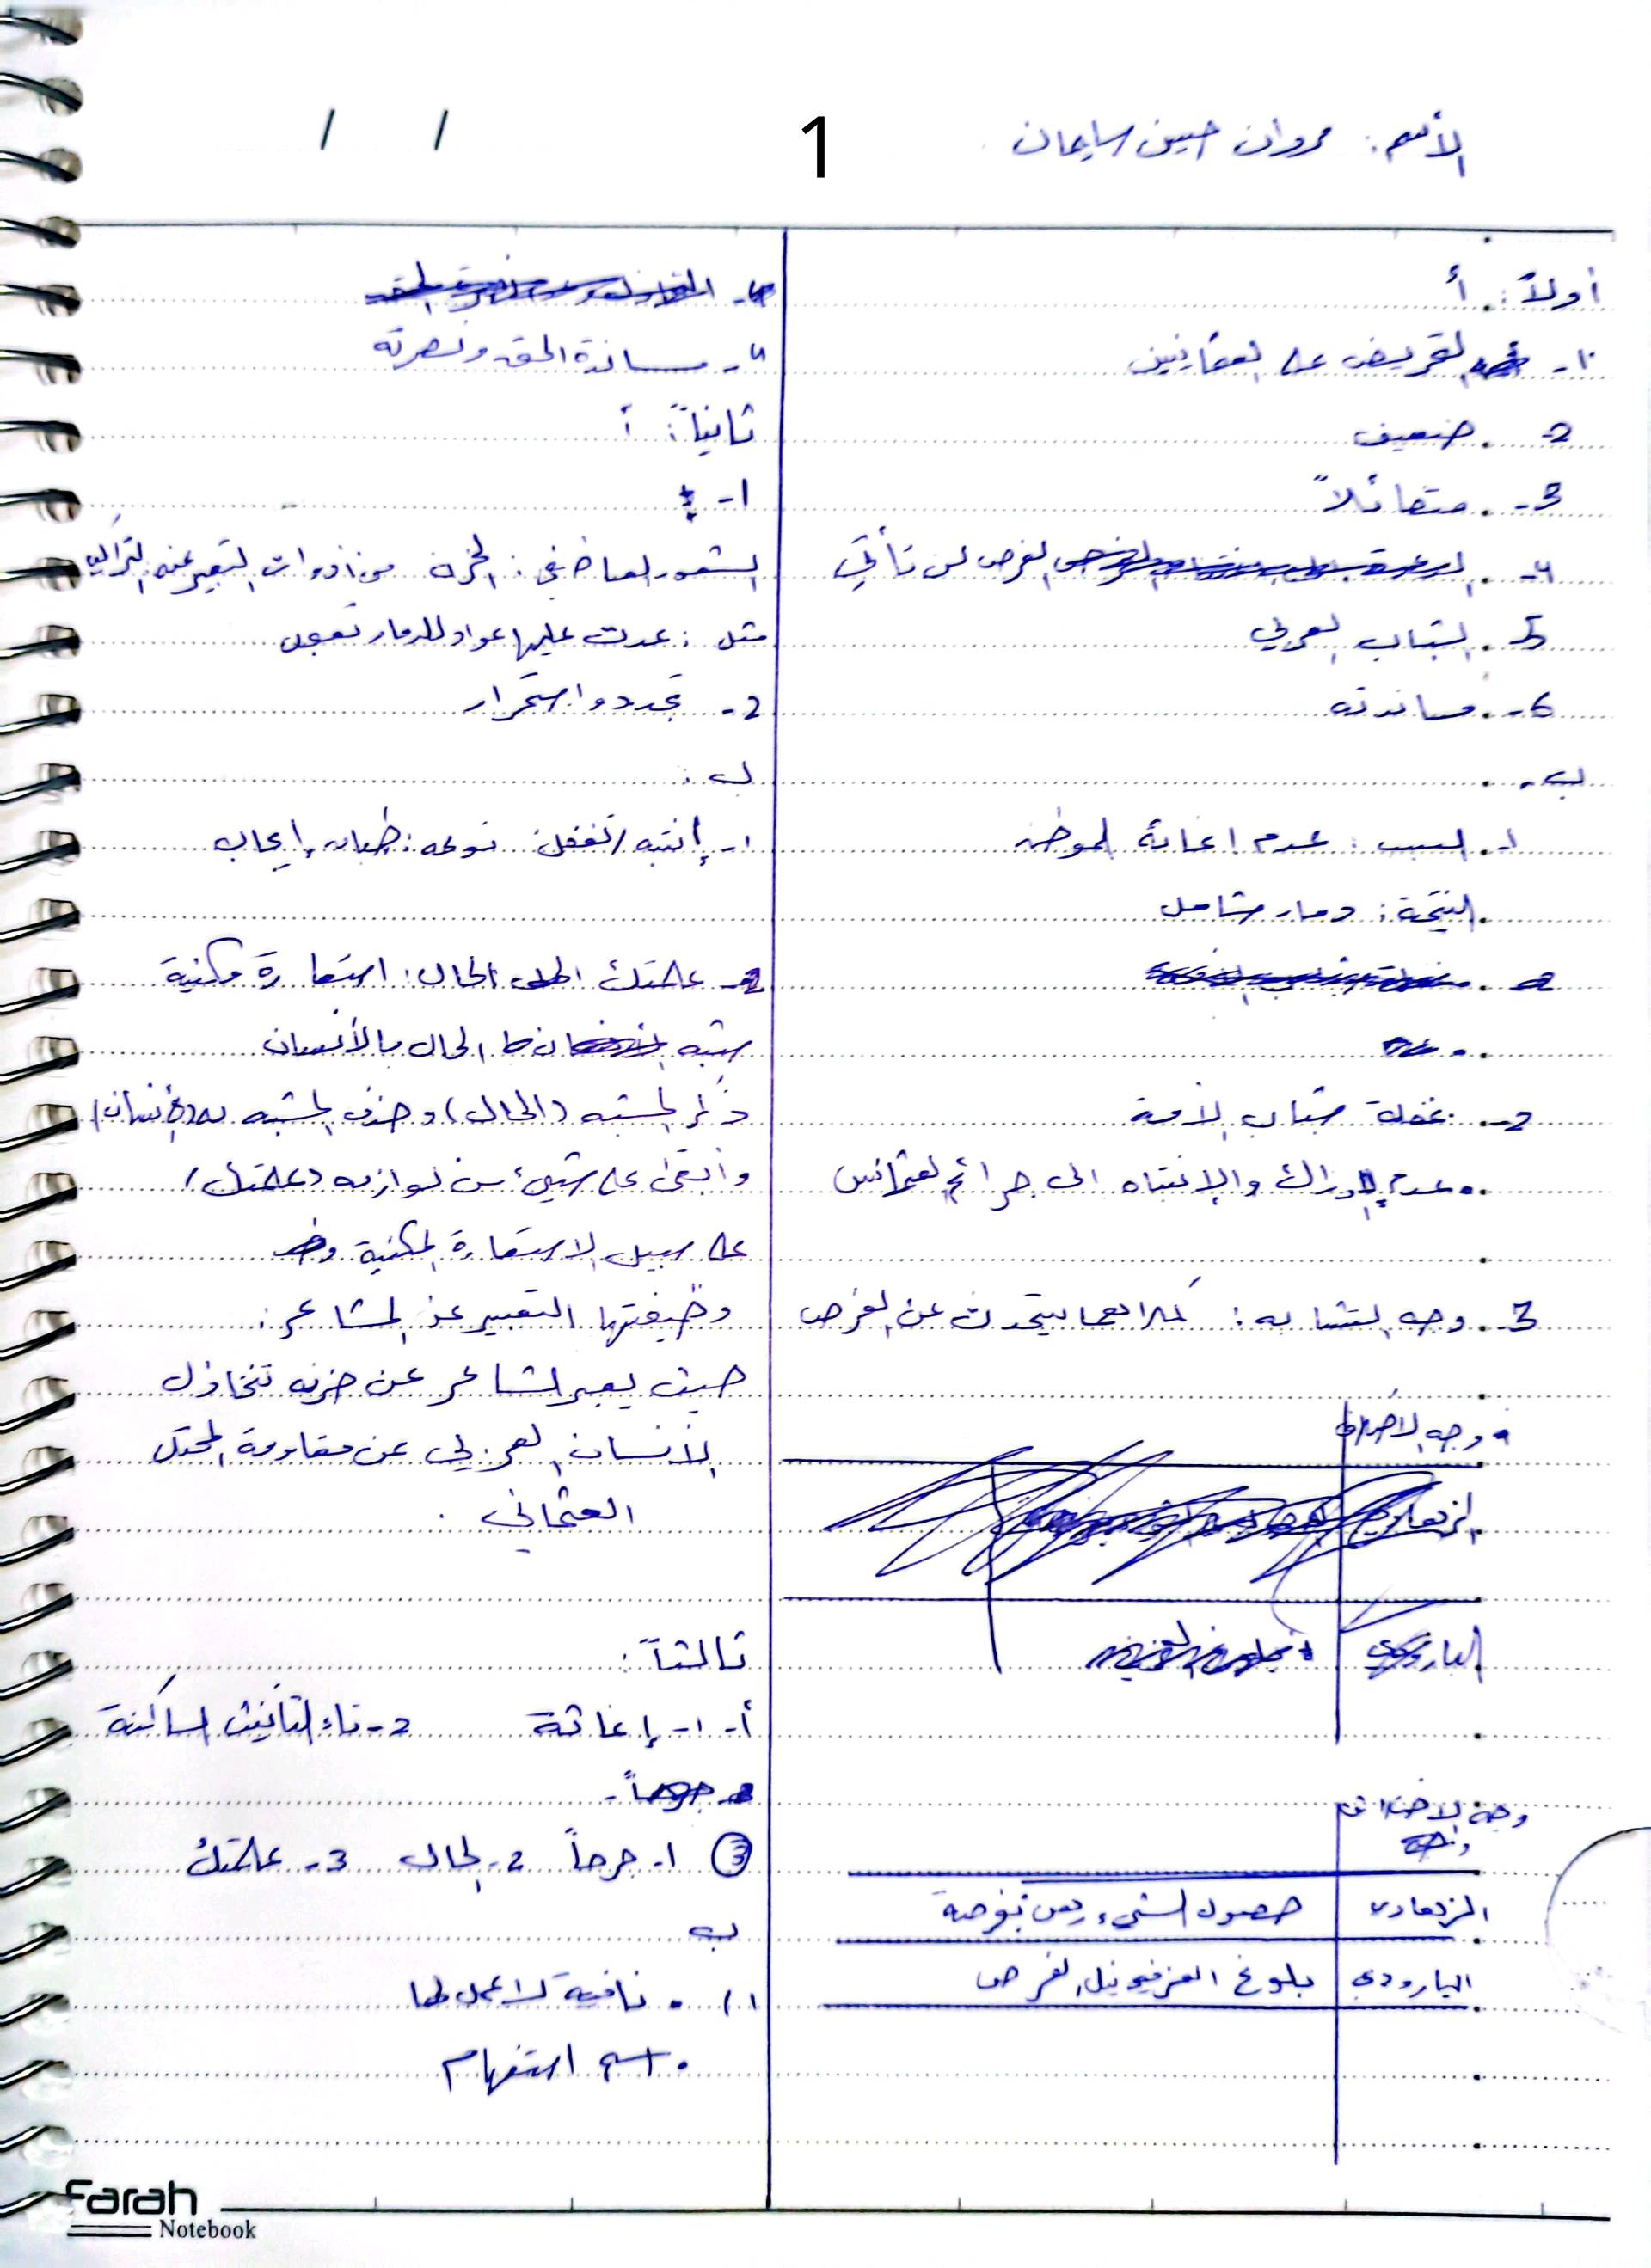 الأسم: مروان حسين سليمان
1
/ /
أولاً: أ
1- التحريض على العثمانيين
2- ضعيف
3- متفائلاً
4- الفرص لن تأتي
5- الشباب العربي
6- مساندته
ب-
1- السبب: عدم إغاثة الموطن
النتيجة: دمار شامل
2- غفلة شباب الامة
عدم إدراك والإنتباه الى جرائم العثمانيين
3- وجه التشابه: كلاهما يتحدث عن الفرص
وجه الاختلاف
الزهاوي
البارودي
وجه الاختلاف
الزهاوي | حصول الشيء رهن بفرصة
البارودي | بلوغ العز في نيل الفرص
4- مساندة الحق ونصرته
ثانياً: أ
1-
الشعور العاطفي: الحزن من أدوات التعبير عنه التراكيب
مثل: عدت عليها عواد للدمار تعجل
2- تجدد واستمرار
ب:
1- إنتبه / تغفلن نوعه: طباق إيجاب
2- علمتك الحال: استعارة مكنية
شبه الحال بالأنسان
ذكر المشبه (الحال) وحذف المشبه به (الأنسان)
وأبقى على شيئ من لوازمه (علمتك)
على سبيل الاستعارة المكنية
وظيفتها التعبير عن المشاعر:
حيث يعبر الشاعر عن حزنه تخاذل
الأنسان العربي عن مقاومة المحتل
العثماني.
ثالثاً:
أ- 1- إغاثة 2- تاء التأنيث الساكنة
3 1- جرحاً 2- الحال 3- علمتك
ب
1) • نافية لا عمل لها
• اسم استفهام
Farah
Notebook